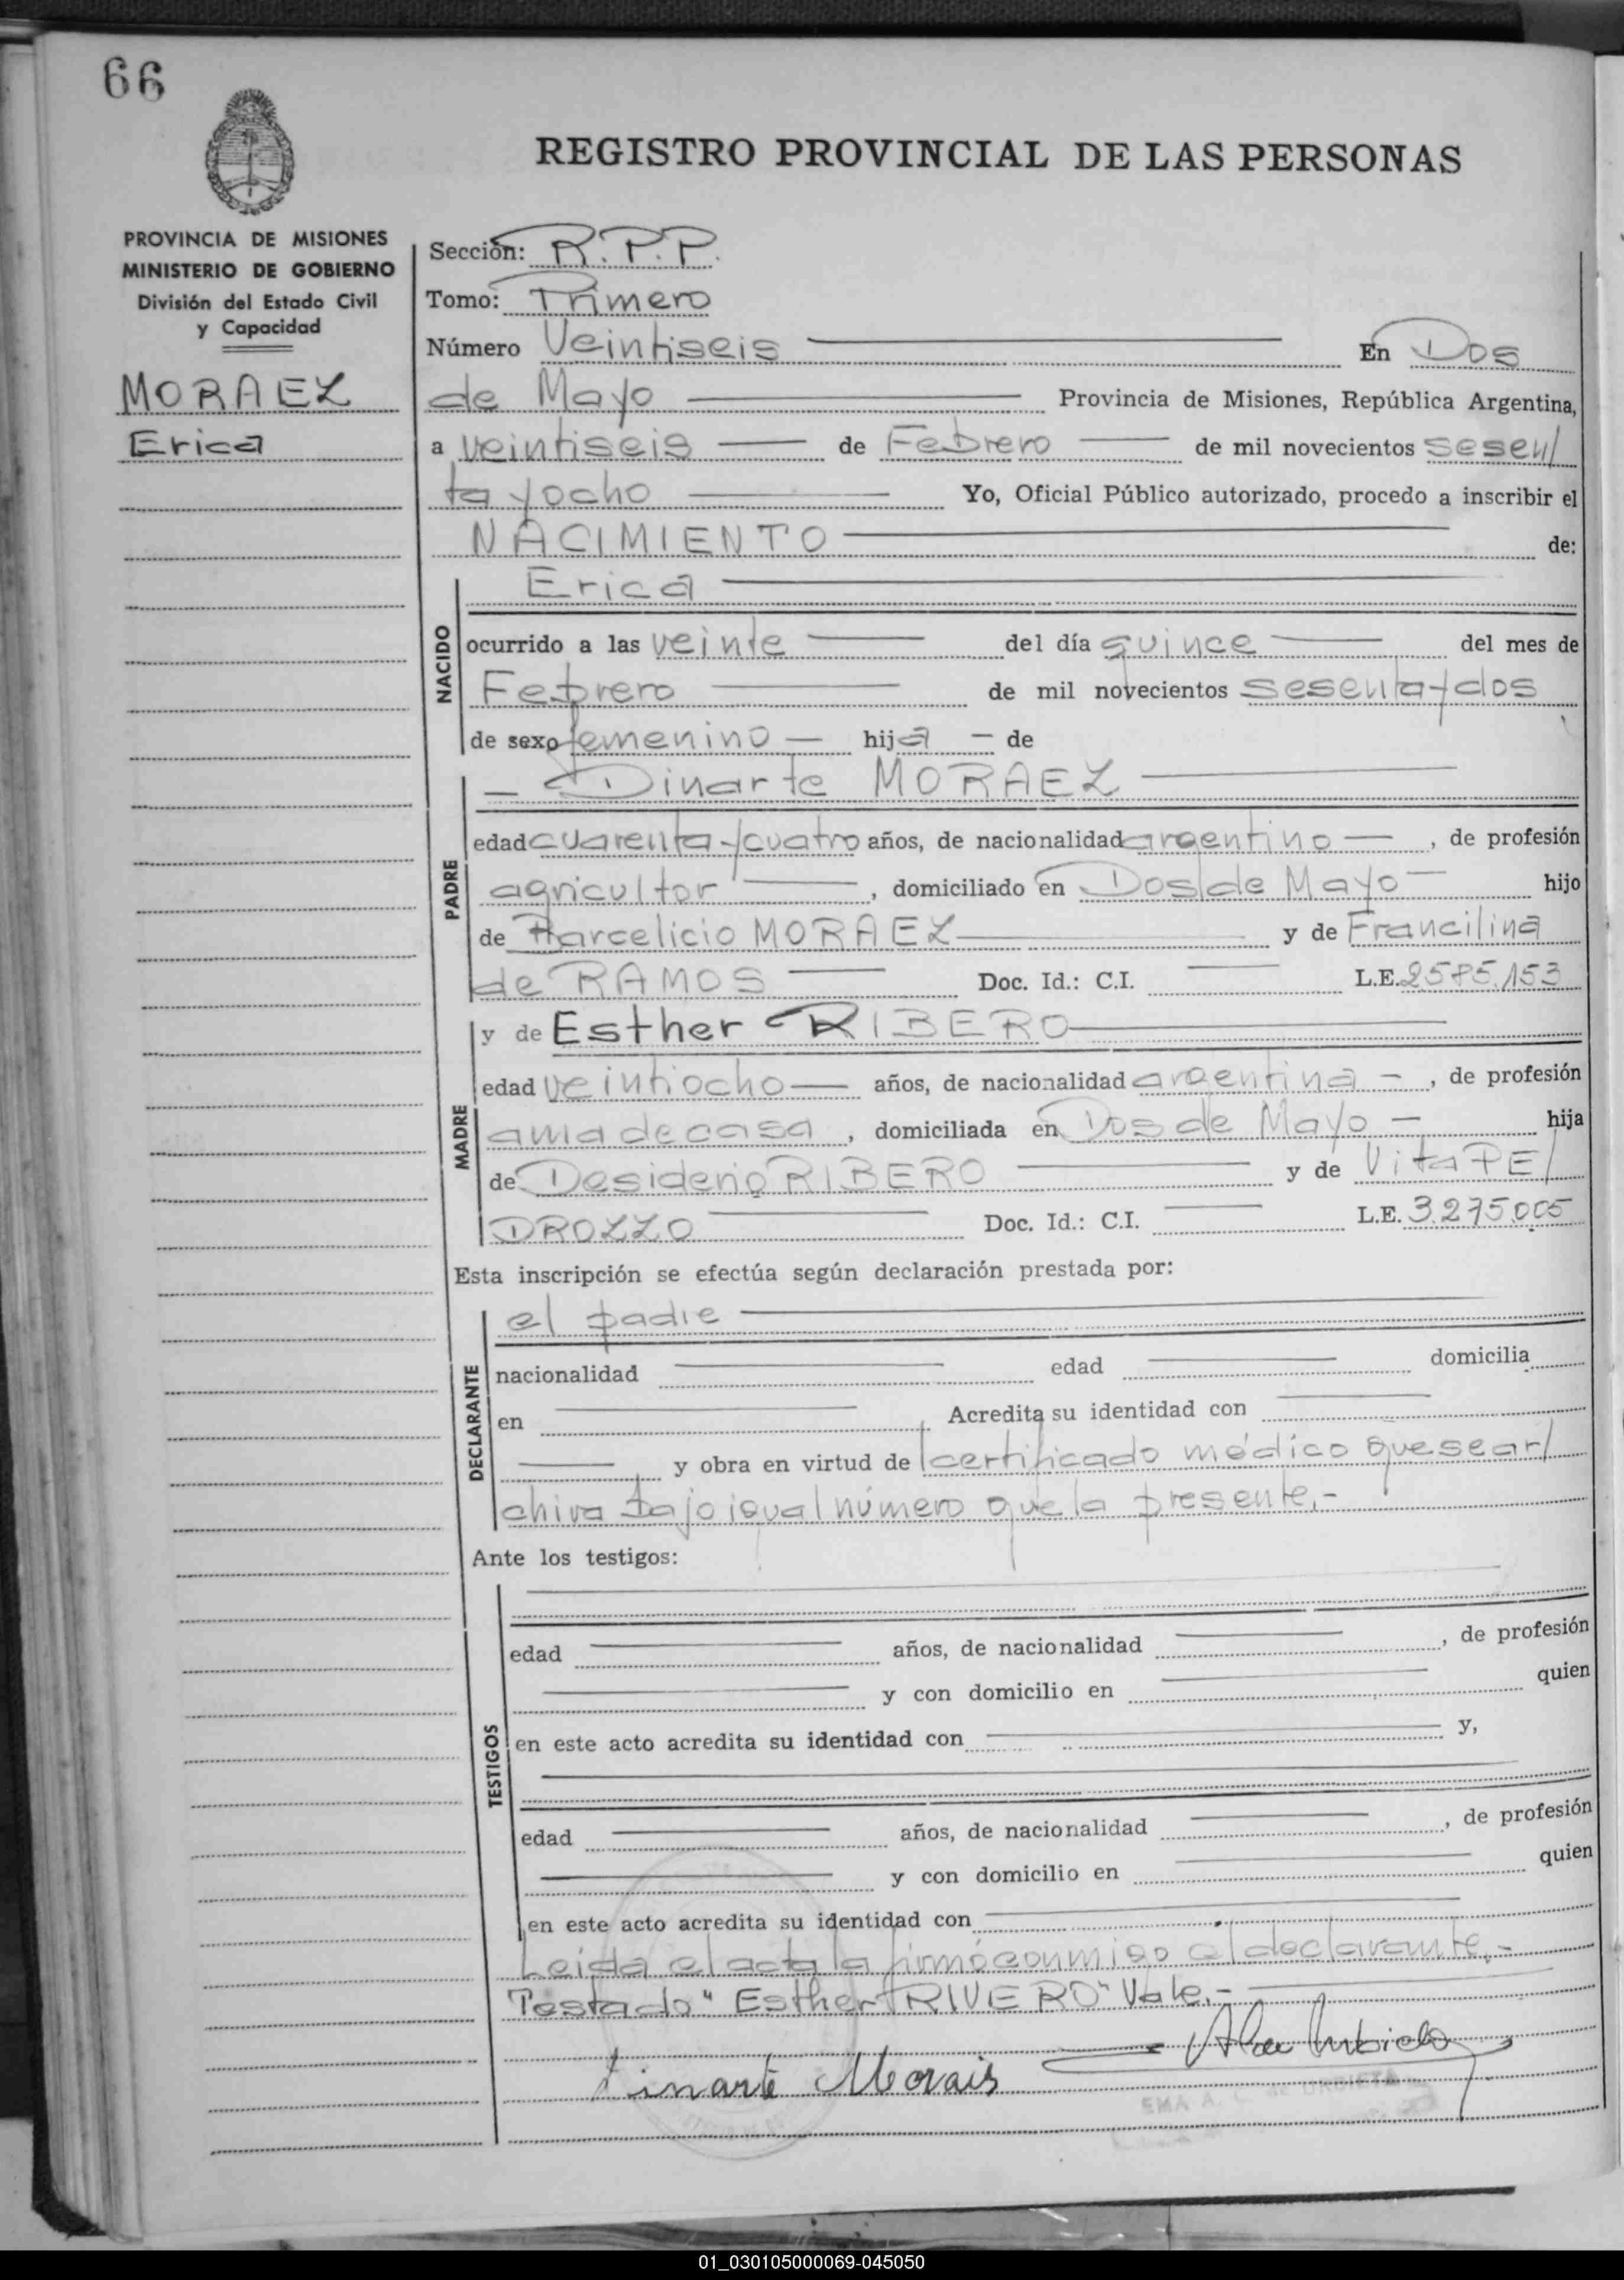 66
REGISTRO PROVINCIAL DE LAS PERSONAS
PROVINCIA DE MISIONES
MINISTERIO DE GOBIERNO
División del Estado Civil
y Capacidad
MORAEZ
Erica
Sección: R.P.P.
Tomo: Primero
Número Veintiseis En Dos
de Mayo Provincia de Misiones, República Argentina,
a veintiseis de Febrero de mil novecientos sesen/
ta y ocho Yo, Oficial Público autorizado, procedo a inscribir el
NACIMIENTO de:
NACIDO
Erica
ocurrido a las veinte del día quince del mes de
Febrero de mil novecientos sesenta y dos
de sexo femenino — hija — de
PADRE
— Dinarte MORAEZ
edad cuarenta y cuatro años, de nacionalidad argentino —, de profesión
agricultor, domiciliado en Dos de Mayo — hijo
de Marcelicio MORAEZ y de Francilina
de RAMOS Doc. Id.: C.I. L.E. 2585.153
MADRE
y de Esther RIBERO
edad veintiocho — años, de nacionalidad argentina —, de profesión
ama de casa, domiciliada en Dos de Mayo — hija
de Desiderio RIBERO y de Vita PE/
DROZZO Doc. Id.: C.I. L.E. 3.275.005
Esta inscripción se efectúa según declaración prestada por:
DECLARANTE
el padre
nacionalidad edad domicilia
en Acredita su identidad con
y obra en virtud de certificado médico que se ar/
chiva bajo igual número que la presente.-
Ante los testigos:
TESTIGOS
edad años, de nacionalidad , de profesión
y con domicilio en quien
en este acto acredita su identidad con y,
edad años, de nacionalidad , de profesión
y con domicilio en quien
en este acto acredita su identidad con
Leida el acta la firmó conmigo el declarante.-
Testado "Esther RIVERO" Vale.-
Dinarte Morais
EMA A. C. de URBIETA
01_030105000069-045050